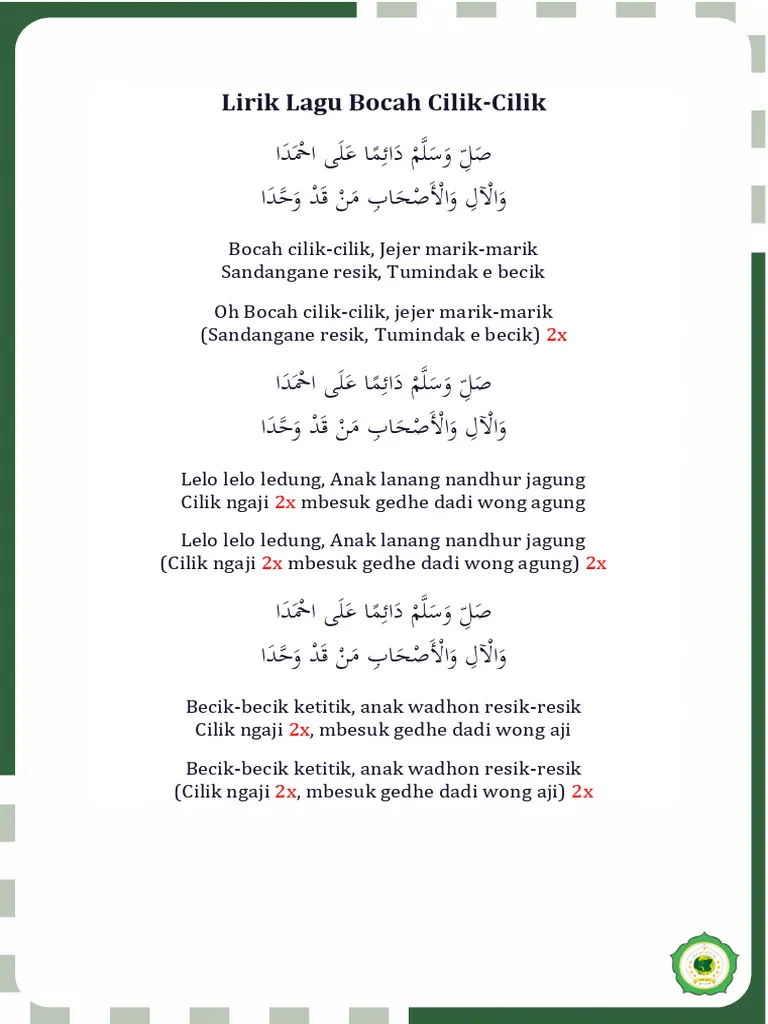 Lirik Lagu Bocah Cilik-Cilik
صَلِّ وَسَلَّمْ دَائِمًا عَلَى احْمَدَا
وَالْآلِ وَالْأَصْحَابِ مَنْ قَدْ وَحَّدَا
Bocah cilik-cilik, Jejer marik-marik
Sandangane resik, Tumindak e becik
Oh Bocah cilik-cilik, jejer marik-marik
(Sandangane resik, Tumindak e becik) 2x
صَلِّ وَسَلَّمْ دَائِمًا عَلَى احْمَدَا
وَالْآلِ وَالْأَصْحَابِ مَنْ قَدْ وَحَّدَا
Lelo lelo ledung, Anak lanang nandhur jagung
Cilik ngaji 2x mbesuk gedhe dadi wong agung
Lelo lelo ledung, Anak lanang nandhur jagung
(Cilik ngaji 2x mbesuk gedhe dadi wong agung) 2x
صَلِّ وَسَلَّمْ دَائِمًا عَلَى احْمَدَا
وَالْآلِ وَالْأَصْحَابِ مَنْ قَدْ وَحَّدَا
Becik-becik ketitik, anak wadhon resik-resik
Cilik ngaji 2x, mbesuk gedhe dadi wong aji
Becik-becik ketitik, anak wadhon resik-resik
(Cilik ngaji 2x, mbesuk gedhe dadi wong aji) 2x